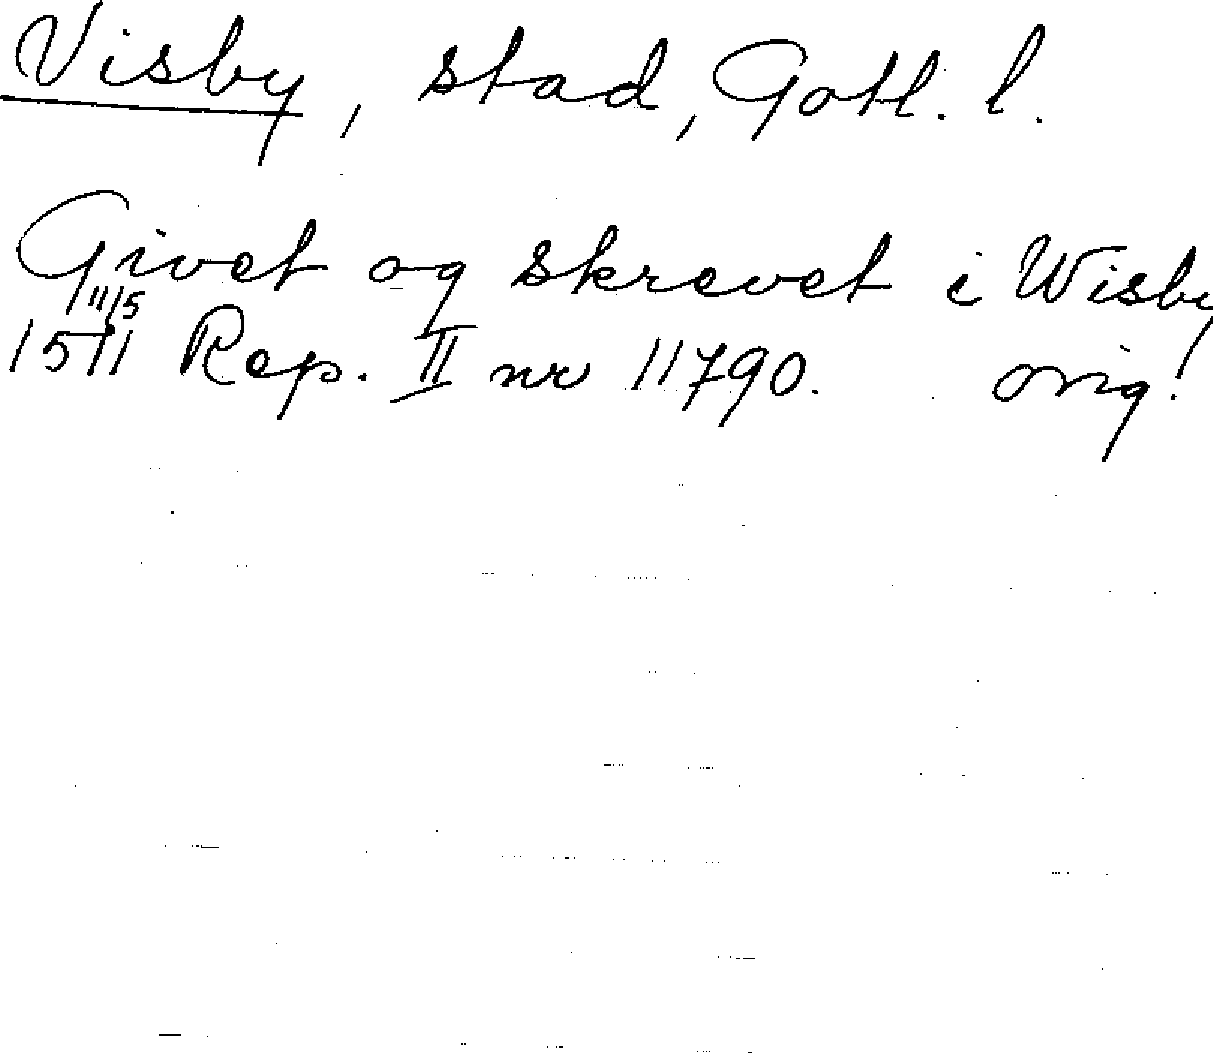 Visby, stad, Gotl. l.
Givet og skrevet i Wisby
11/5
1511 Rep. II nr 11790. orig!